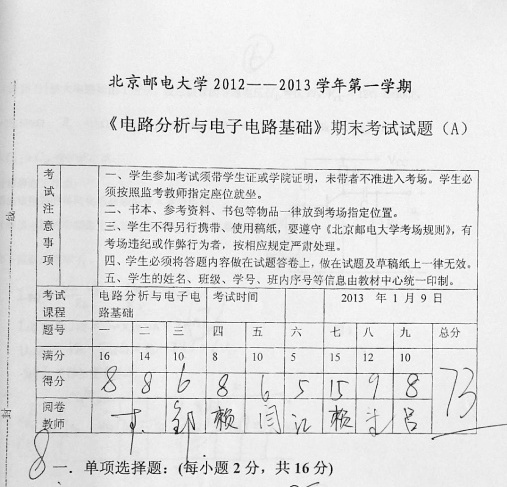 北京邮电大学 2012——2013 学年第一学期
《电路分析与电子电路基础》期末考试试题（A）
考试注意事项
一、学生参加考试须带学生证或学院证明，未带者不准进入考场。学生必
须按照监考教师指定座位就坐。
二、书本、参考资料、书包等物品一律放到考场指定位置。
三、学生不得另行携带、使用稿纸，要遵守《北京邮电大学考场规则》，有
考场违纪或作弊行为者，按相应规定严肃处理。
四、学生必须将答题内容做在试题答卷上，做在试题及草稿纸上一律无效。
五、学生的姓名、班级、学号、班内序号等信息由教材中心统一印制。
考试课程 电路分析与电子电路基础 考试时间 2013 年 1 月 9 日
题号 一 二 三 四 五 六 七 八 九 总分
满分 16 14 10 8 10 5 15 12 10
得分 8 8 6 8 6 5 15 9 8 73
阅卷教师 邹 赖 闫 江 赖 吕
8
一．单项选择题：(每小题 2 分，共 16 分)
线
封